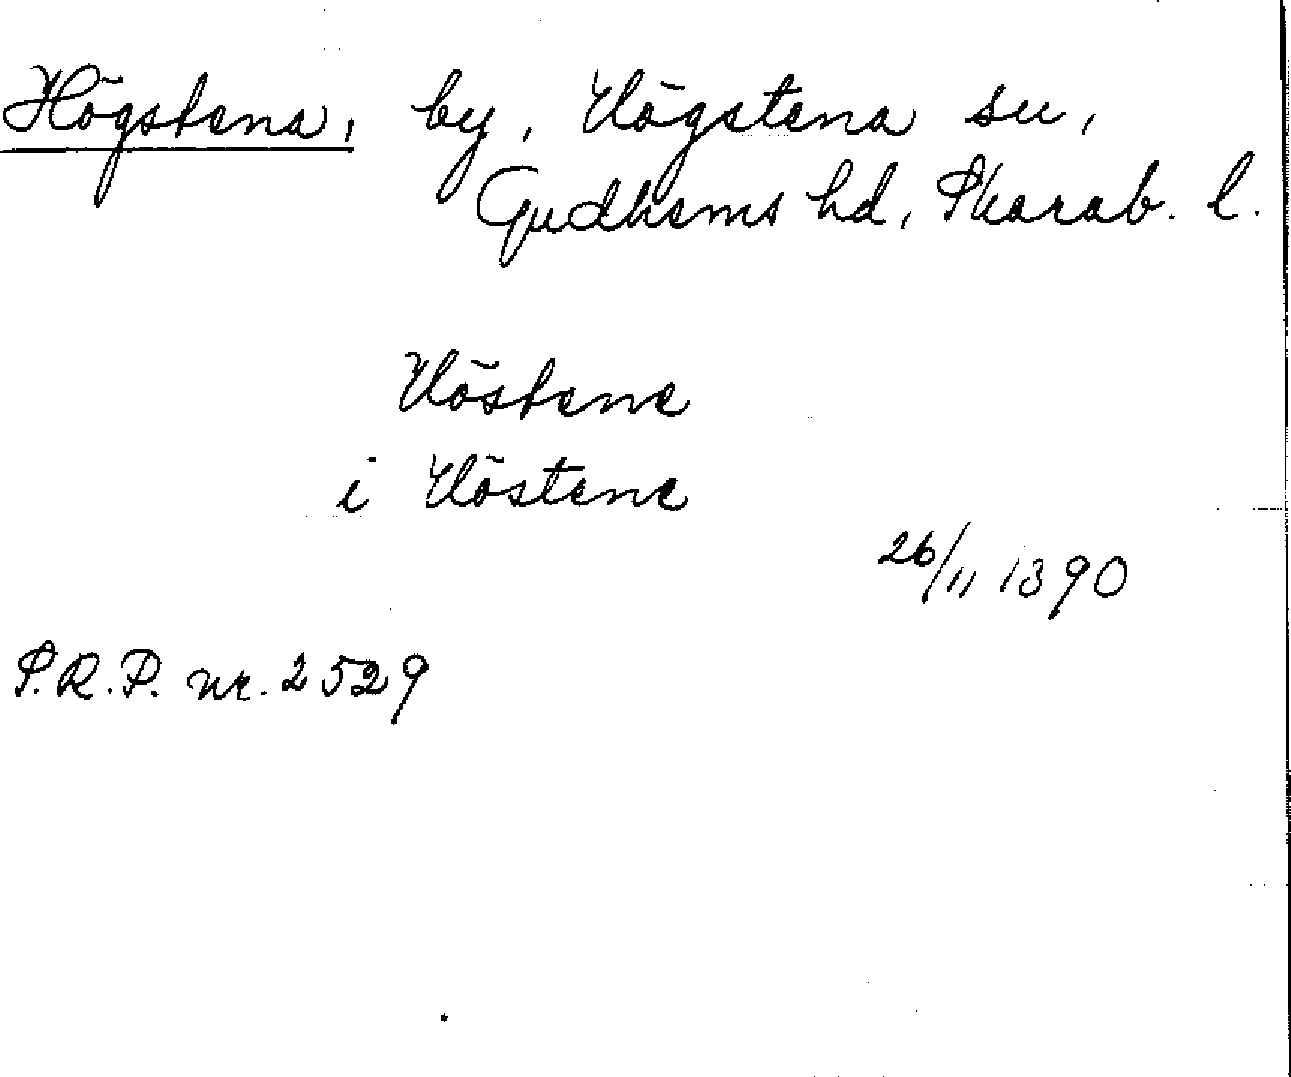 Högstena, by, Högstena sn,
Gudhems hd, Skarab. l.
Höstene
i Höstene
26/11 1390
S.R.P. nr. 2529